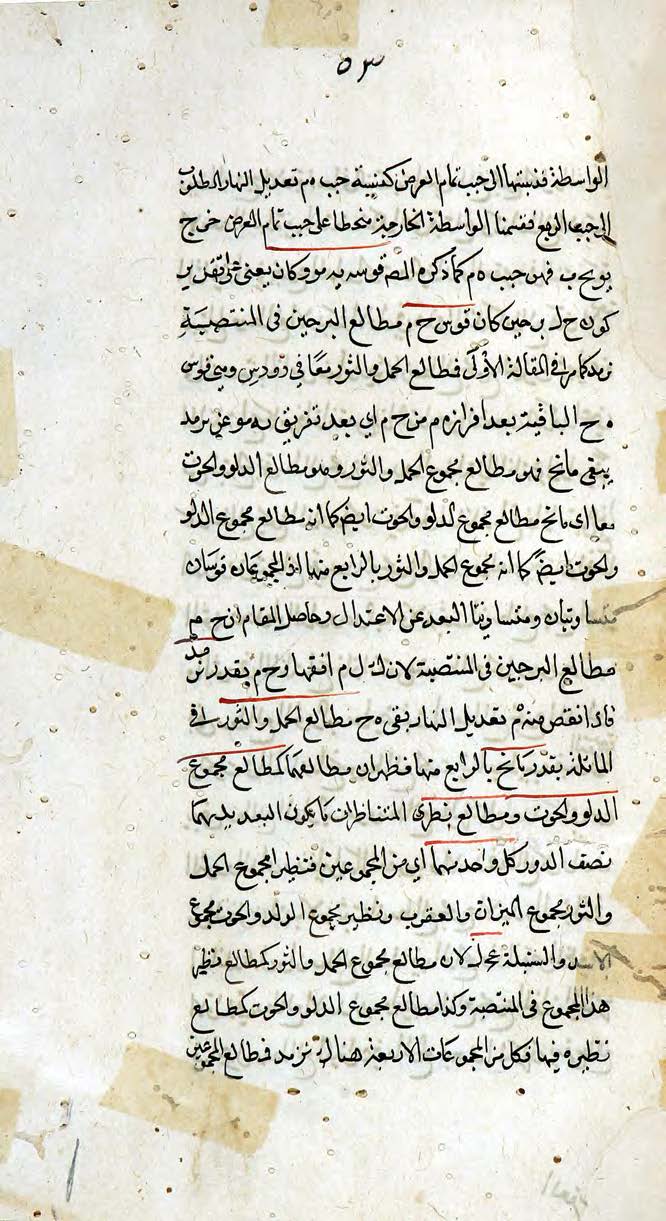 ٥٣
الواسطة فنسبتها الى جيب تمام العرض كنسبة جيب ه م تعديل النهار المطلوب
الى جيب الربع فقسمنا الواسطة الخارجة منحطا على جيب تمام العرض خرج
فهو جيب ه م كما ذكره المص قوسه يه مو وكان يعنى على تقدير
كون ح ل برجين كان قوس ح م مطالع البرجين فى المنتصبة
نر مد كما مر فى المقالة الأولى فطالع الحمل والثور معا فى رودس وهى قوس
ه ح الباقية بعد افراز ه م من ح م اى بعد تفريق يه مو عن نر مد
يبقى ما نح فهو مطالع مجموع الحمل والثور وهو مطالع الدلو والحوت
معا اى ما نح مطالع مجموع الدلو والحوت ايض كما انه مطالع مجموع الدلو
والحوت ايض كما انه مجموع الحمل والثور بالرابع منها اذ المجموعان قوسان
متساويتان ومتساويتا البعد عن الاعتدال وحاصل المقام ان ح م
مطالع البرجين فى المنتصبة لان ل م افقها وح م بقدر نر مد
فاذا نقص منه ه م تعديل النهار بقى ه ح مطالع الحمل والثور فى
المائلة بقدر ما نح بالرابع منها فظهر ان مطالعهما كمطالع مجموع
الدلو والحوت ومطالع نظرى المتناظران ما يكون البعد بينهما
نصف الدور كل واحد منهما أى من المجموعين فنظير مجموع الحمل
والثور مجموع الميزان والعقرب ونظير مجموع الدلو والحوت مجموع
الاسد والسنبلة لان مطالع مجموع الحمل والثور كمطالع نظير
هذا المجموع فى المنتصبة وكذا مطالع مجموع الدلو والحوت كمطالع
نظيره فيها فكل من المجموعات الاربعة هنالك نر مد فطالع المجموعين